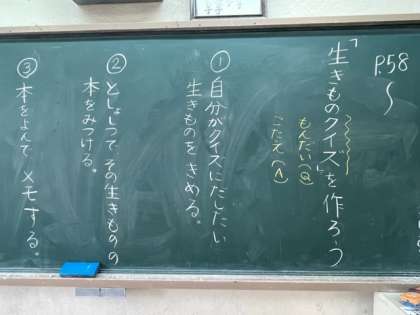 P.58〜
「生きものクイズ」を作ろう
もんだい(Q)
こたえ(A)
① 自分がクイズにだしたい
生きものをきめる。
② としょしつでその生きものの
本をみつける。
③ 本をよんで、メモする。